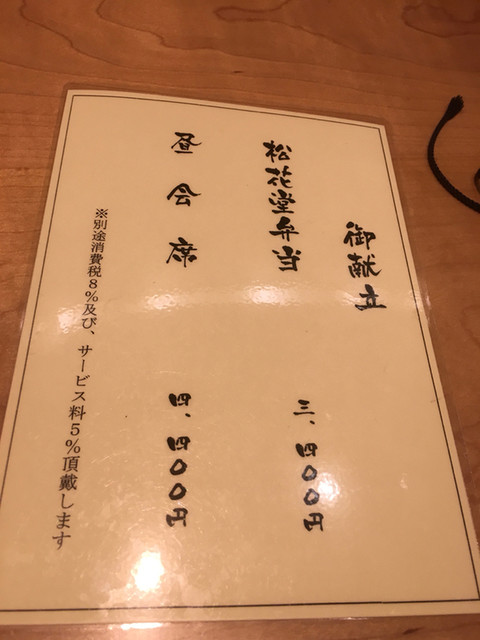 御献立
松花堂弁当 三、四〇〇円
昼会席 四、四〇〇円
※別途消費税8%及び、サービス料5%頂戴します